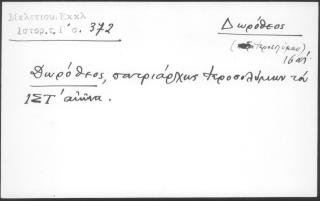 Μελετίου. Εκκλ
Ιστορ. τ. Γ' σ. 372
Δωρόθεος
(Ιεροσολύμων)
16 αἰ.
Δωρόθεος, πατριάρχης Ἱεροσολύμων τοῦ
ΙΣΤ' αἰῶνα.